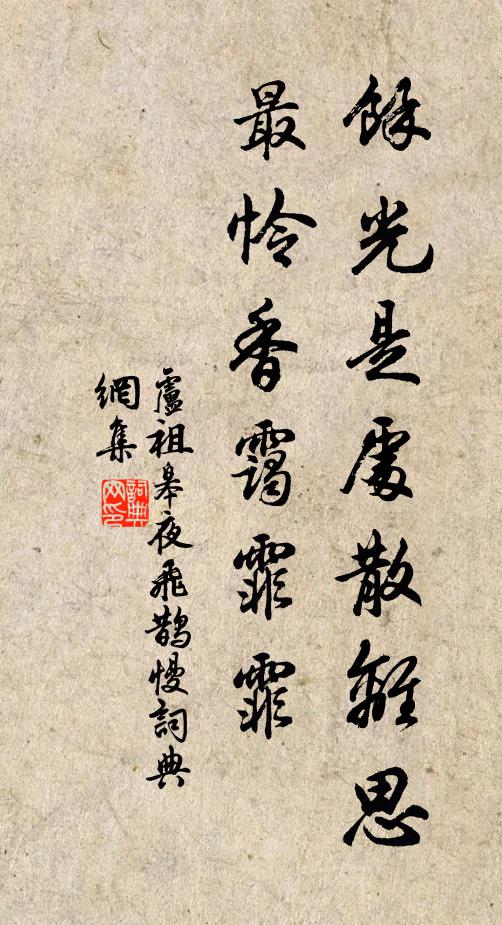 餘光是處散離思
最憐香靄霏霏
盧祖皋夜飛鵲慢詞典
網集
詞典
网印